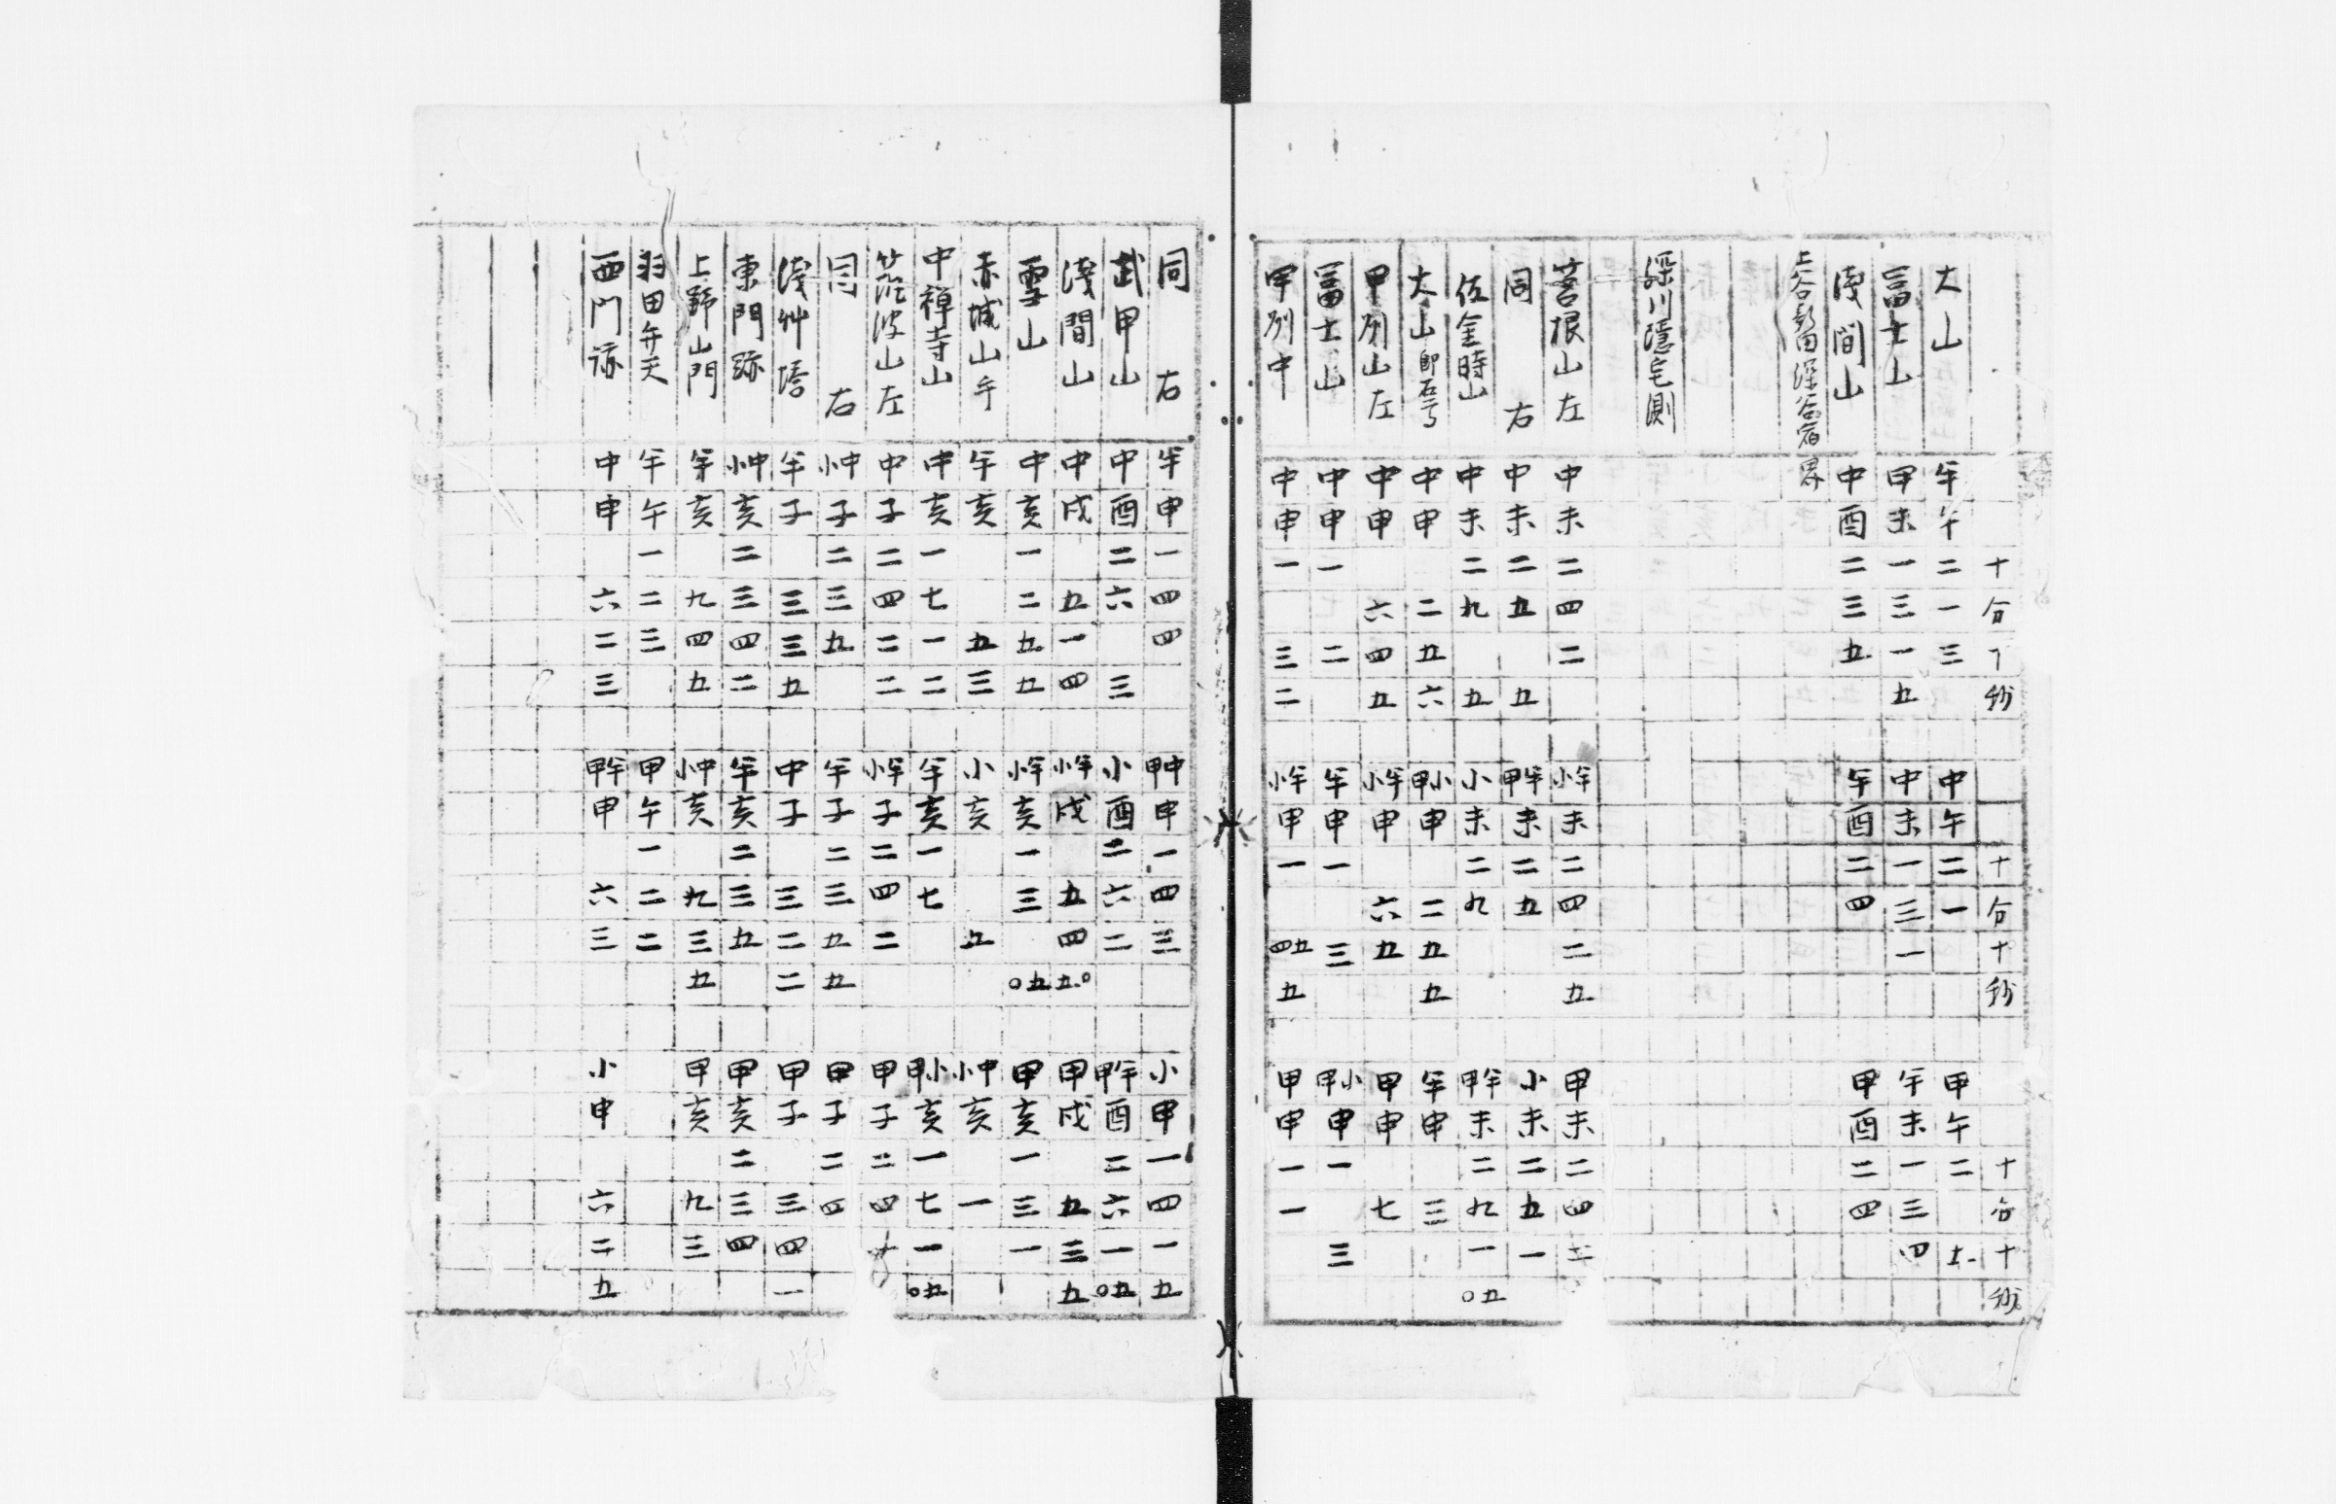 十分十秒 十分十秒 十分十秒
大山 半午二一三 中午二一 甲午二五
富士山 甲未一三一五 中未一三一 半未一三四
淺間山 中酉二三五 半酉二四 甲酉二四
上谷新田深谷宿界
深川隱宅測
筥根山左 中未二四二 小半未二四二五 甲未二四
同右 中未二五五 甲半未二五 小未二五一
佐金時山 中未二九五 小未二九 甲半未二九一〇五
大山即石尊 中申二五六 甲小申二五五 半申三
甲州山左 中申六四五 小半申六五 甲申七
冨士山 中申一二 半申一三 甲小申一三
甲州中 中申一三二 小半申一四五五 甲申一一
同右 半申一四四 甲中申一四三 小申一四一五
武甲山 中酉二六三 小酉二六二 甲半酉二六一〇五
淺間山 中戌五一四 小半戌五四五〇 甲戌五三五
雪山 中亥一二五五 小半亥一三〇五 甲亥一三一
赤城山 半亥五三 小亥五 小中亥一
中禅寺山 中亥一七一二 半亥一七 甲小亥一七一〇五
筑波山左 中子二四二二 小半子二四二 甲子二四
同右 小中子二三五 半子二三五五 甲子二四
淺艸塔 半子三三五 中子三二二 甲子三四一
東門跡 小中亥二三四二 半亥二三五 甲亥二三四
上野山門 半亥九四五 小中亥九三五 甲亥九三
羽田弁天 半午一二三 甲午一二二
西門跡 中申六二三 甲半申六三 小申六二五